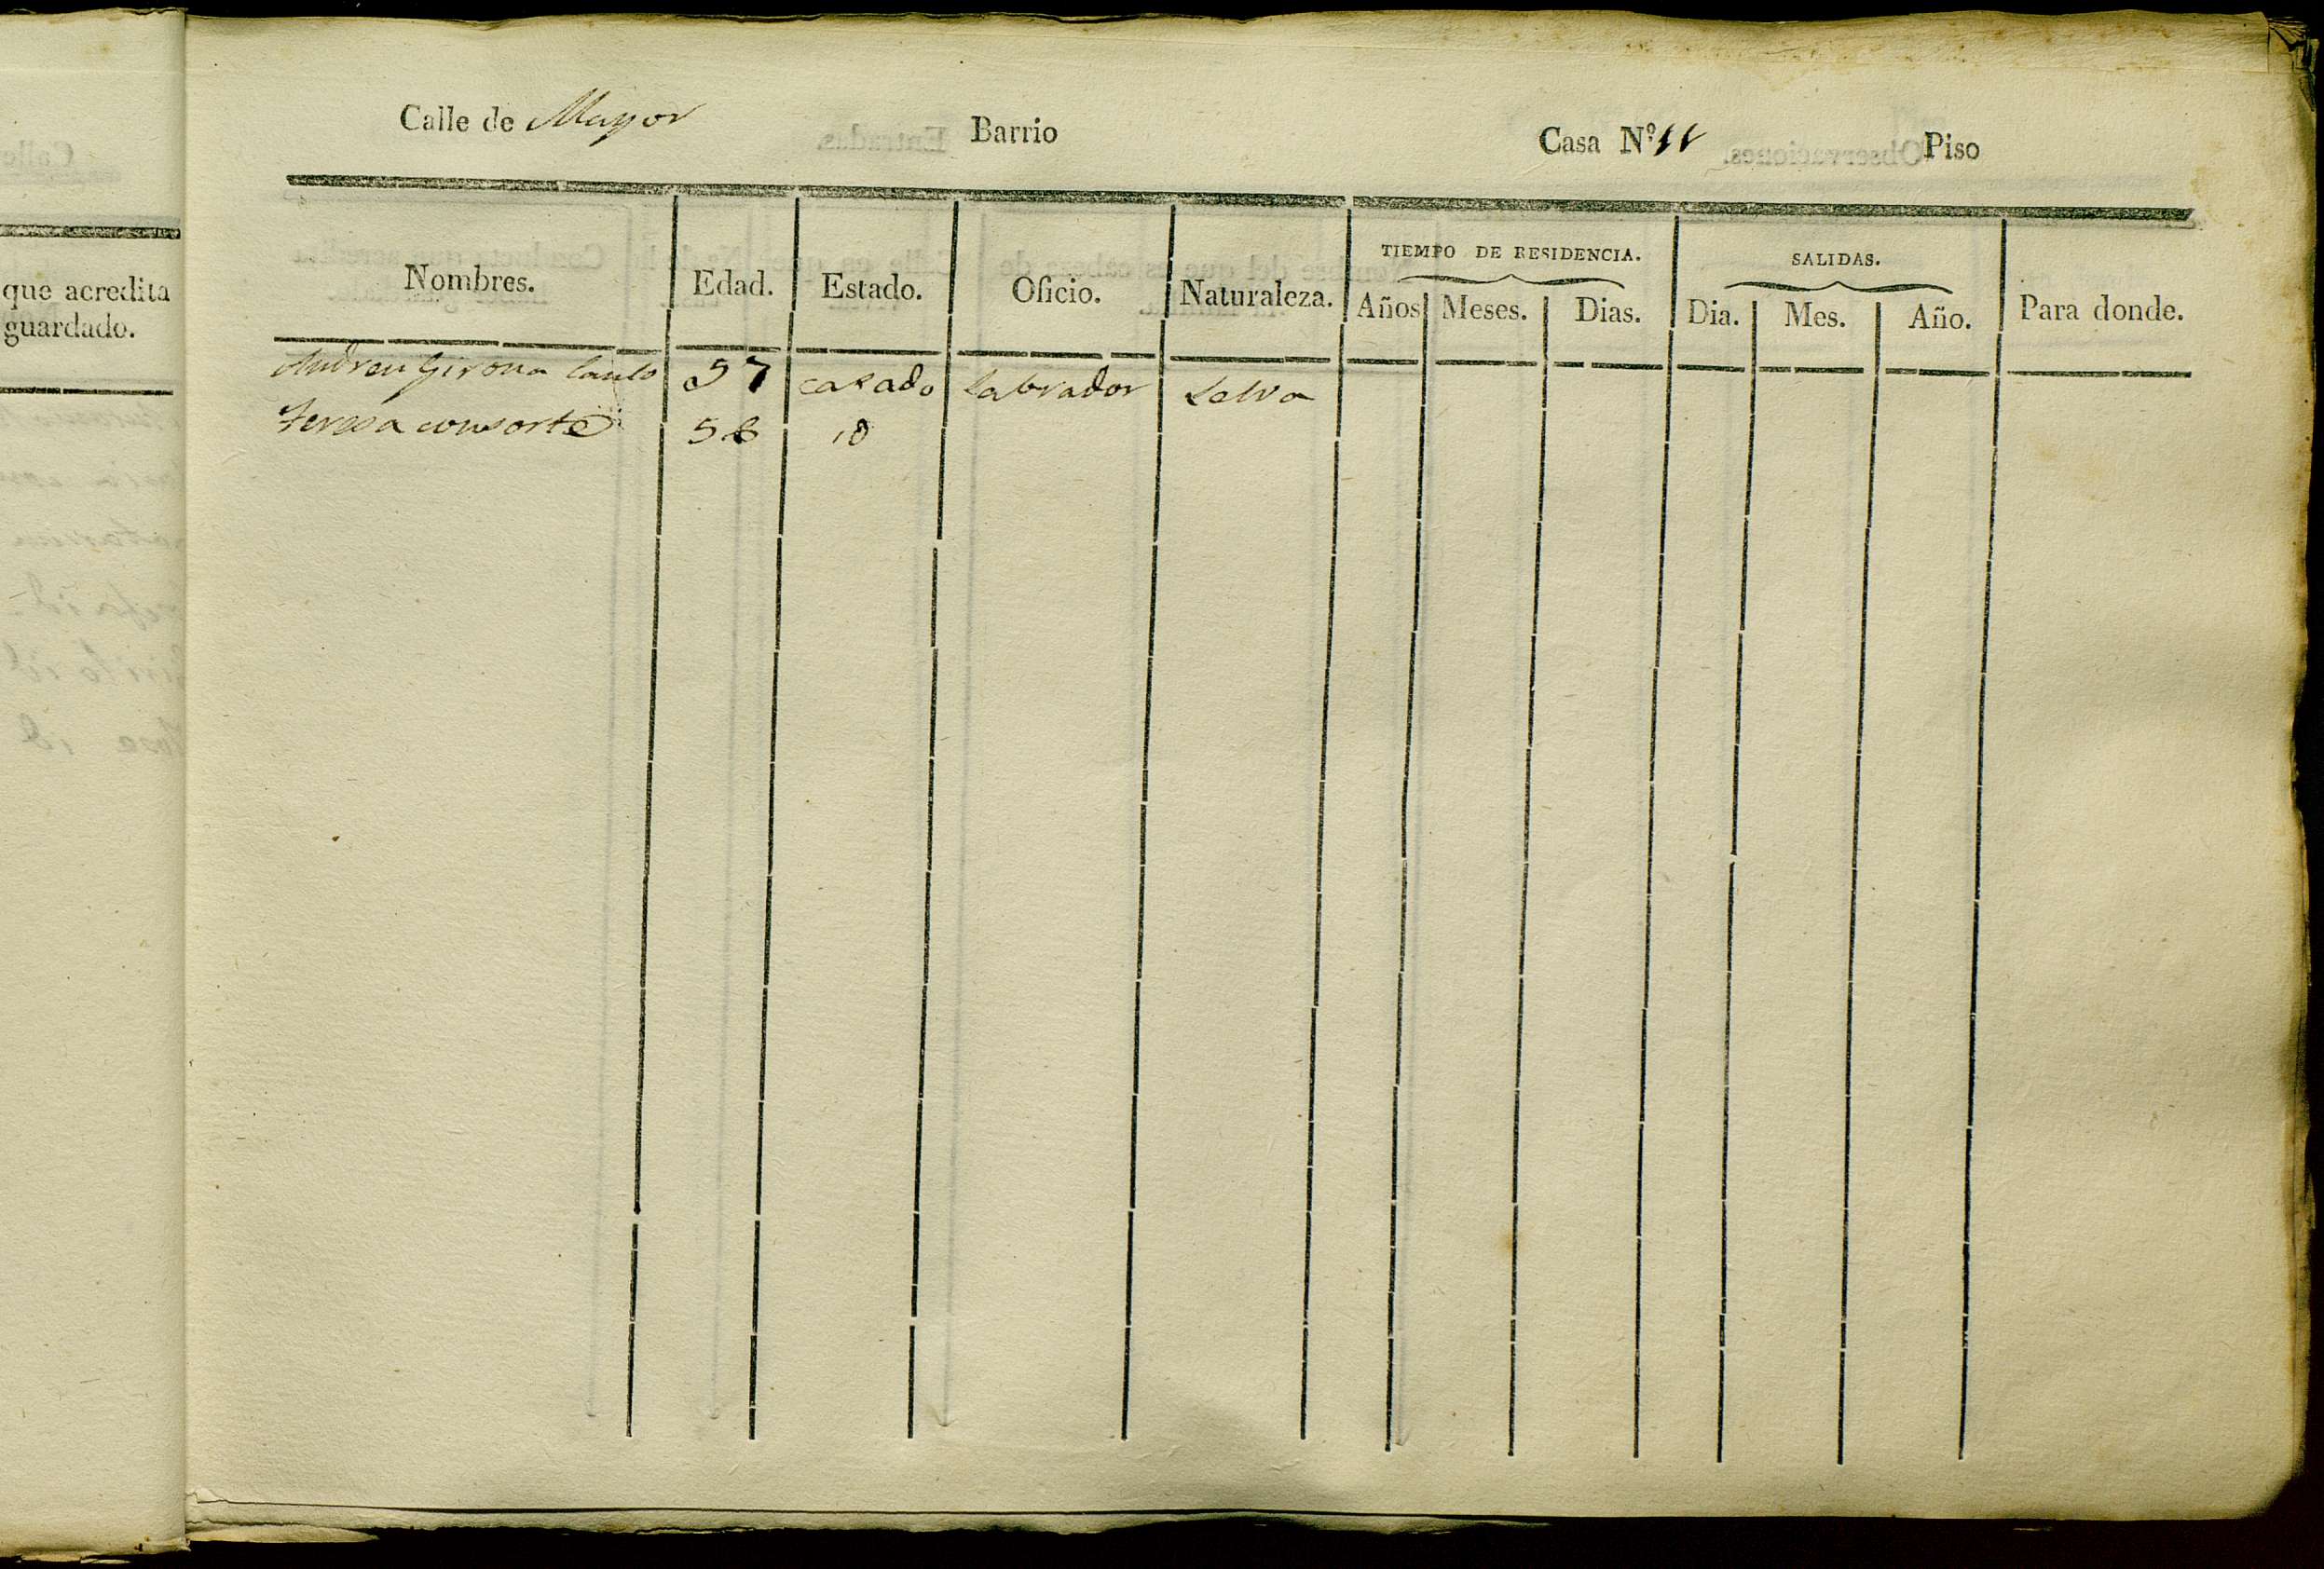 Calle de Mayor Barrio Casa Nº 11 Piso
TIEMPO DE RESIDENCIA. SALIDAS.
Nombres. Edad. Estado. Oficio. Naturaleza. Años Meses. Dias. Dia. Mes. Año. Para donde.
Andreu Girona 57 casado Labrador Selva
Teresa consorte 58 id
que acredita
guardado.